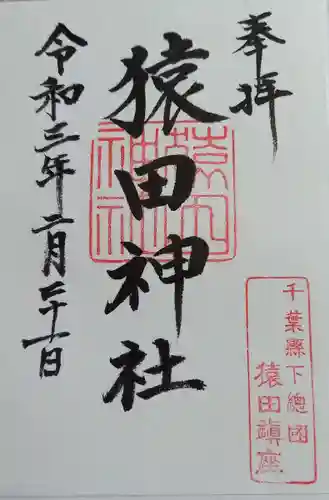 奉拝
猿田神社
猿田神社
令和三年二月二十一日
千葉縣下總國
猿田鎮座